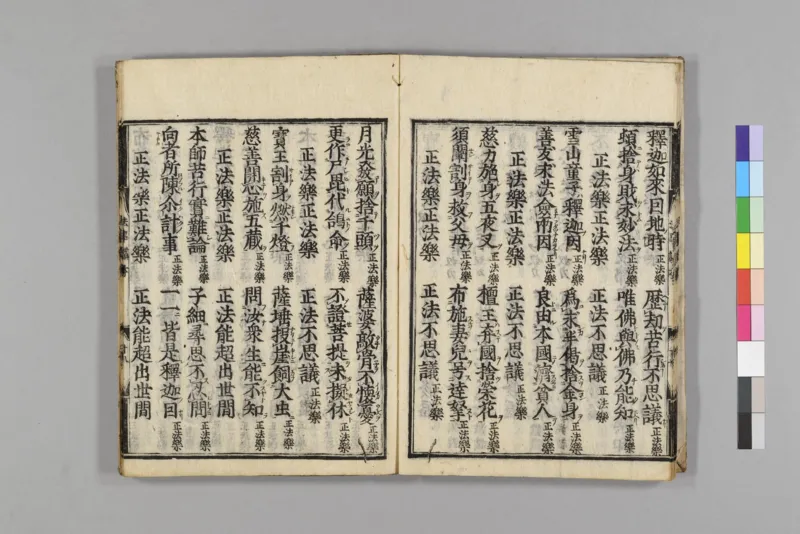 釋迦如來因地時正法樂 歴劫苦行不思議正法樂
頻捨身財求妙法正法樂 唯佛與佛乃能知正法樂
正法樂正法樂 正法不思議正法樂
雪山童子釋迦因正法樂 為求半偈捨全身正法樂
善友求法僉南因正法樂 良由本國濟貧人正法樂
正法樂正法樂 正法不思議正法樂
慈力施身五夜叉正法樂 檀王弃國捨榮花正法樂
須闡割身救父母正法樂 布施妻兒号達拏正法樂
正法樂正法樂 正法不思議正法樂
月光發願捨千頭正法樂 薩婆敲骨不懷憂正法樂
更作尸毘代鴿命正法樂 不證菩提未擬休正法樂
正法樂正法樂 正法不思議正法樂
寶王割身燃千燈正法樂 薩埵投崖飼大虫正法樂
慈善開心施五藏正法樂 問汝衆生能不知正法樂
正法樂正法樂 正法能超出世間
本師苦行實難論正法樂 子細尋思不忍聞正法樂
向者所陳介計事正法樂 一一皆是釋迦因正法樂
正法樂正法樂 正法能超出世間